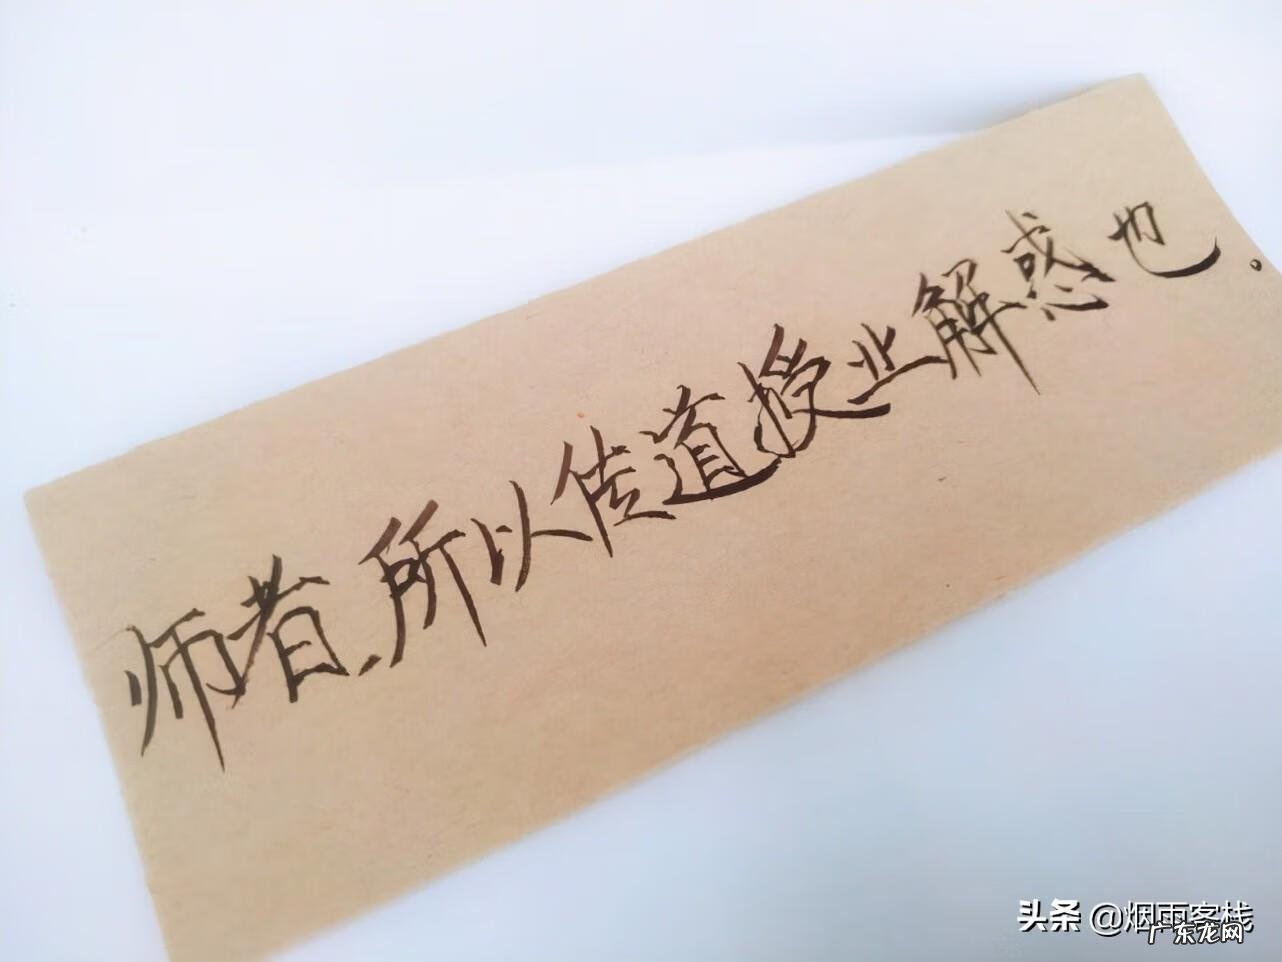 师者、所以传道授业解惑也.
头条 @烟雨客栈
广东龙网